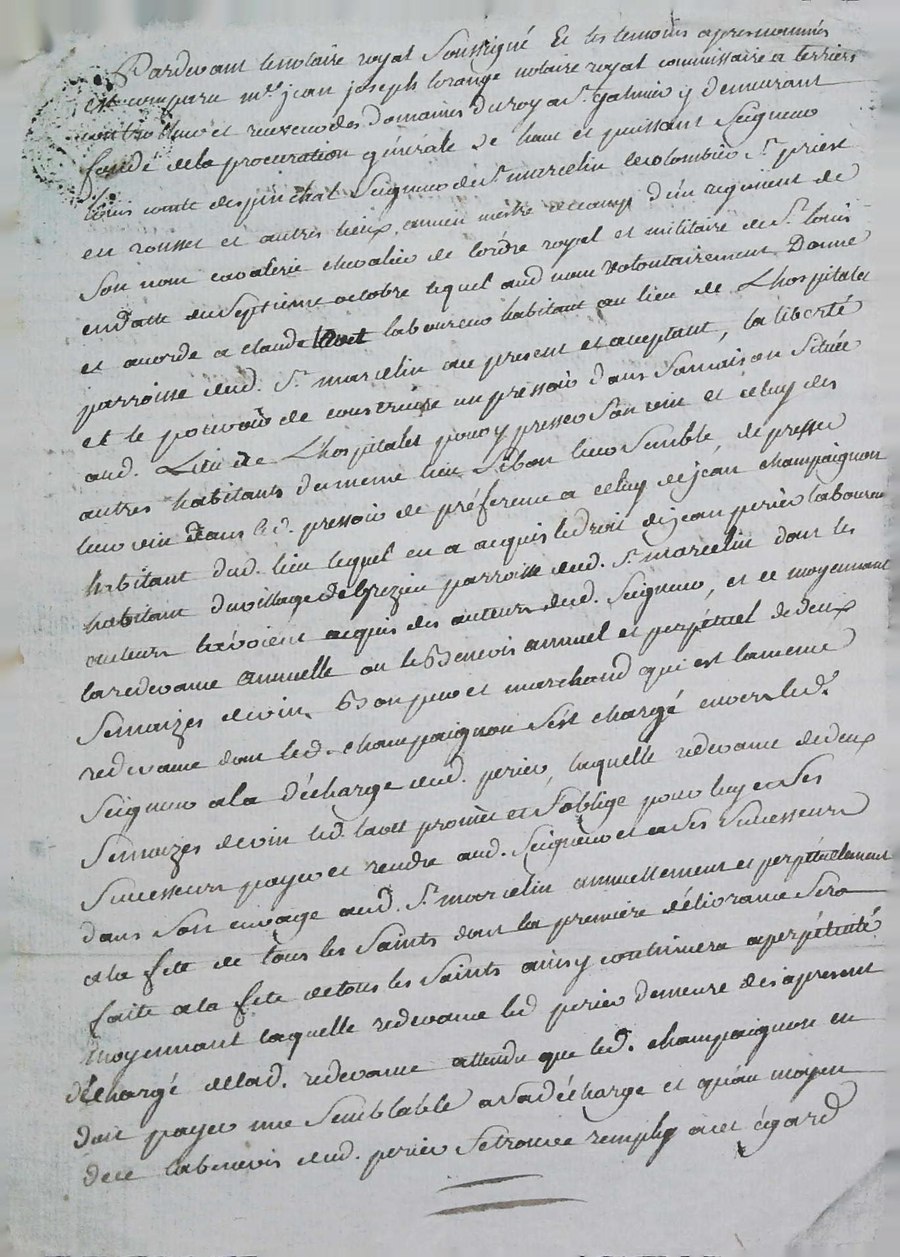 Pardevant le notaire royal Soussigné Et les temoins apres nommés
est comparu mre jean joseph lorange notaire royal commissaire a terriers
controlleur et receveur des domaines du roy a St. Galmier y demeurant
fondé de la procuration générale de haut et puissant Seigneur
Louis comte despinchal Seigneur de St. marcelin le colombier St. priest
en rousset et autres lieux, ancien mestre de camp d'un regiment de
Son nom cavalerie chevalier de lordre royal et militaire de St. louis
en datte du Septieme octobre lequel aud. nom volontairement Donne
et accorde a claude laboureur habitant au lieu de Lhospitalet
parroisse dud. St. marcelin icy present et acceptant, la liberté
et le pouvoir de construire un pressoir dans Sa maison Située
aud. Lieu de Lhospitalet pour y presser Son vin et celuy des
autres habitants du meme lieu Si bon leur Semble, de presser
leur vin dans led. pressoir de préference a celuy de jean champaignon
habitant dud. lieu lequel en a acquis le droit de jean perier laboureur
habitant du village de parroisse dud. St. marcelin dont les
auteurs lavoient acquis des auteurs dud. Seigneur, et ce moyennant
la redevance annuelle ou le Benevis annuel et perpétuel de deux
Semaizes de vin Bon pur et marchand qui est la meme
redevance dont led. champaignon Sest chargé envers led.
Seigneur a la décharge dud. perier, laquelle redevance de deux
Semaizes de vin led. promet et S'oblige pour luy et Ses
Successeurs payer et rendre aud. Seigneur et a Ses Successeurs
dans Son cuvage aud. St. marcelin annuellement et perpétuellement
a la fete de tous les Saints dont la premiere délivrance Sera
faite a la fete de tous les Saints ainsy continuera a perpétuité
moyennant laquelle redevance led. perier demeure des apresent
déchargé de lad. redevance attendu que led. champaignon en
doit payer une Semblable a Sa décharge et qu'au moyen
de ce labenevis dud. perier Se trouve remply a cet égard